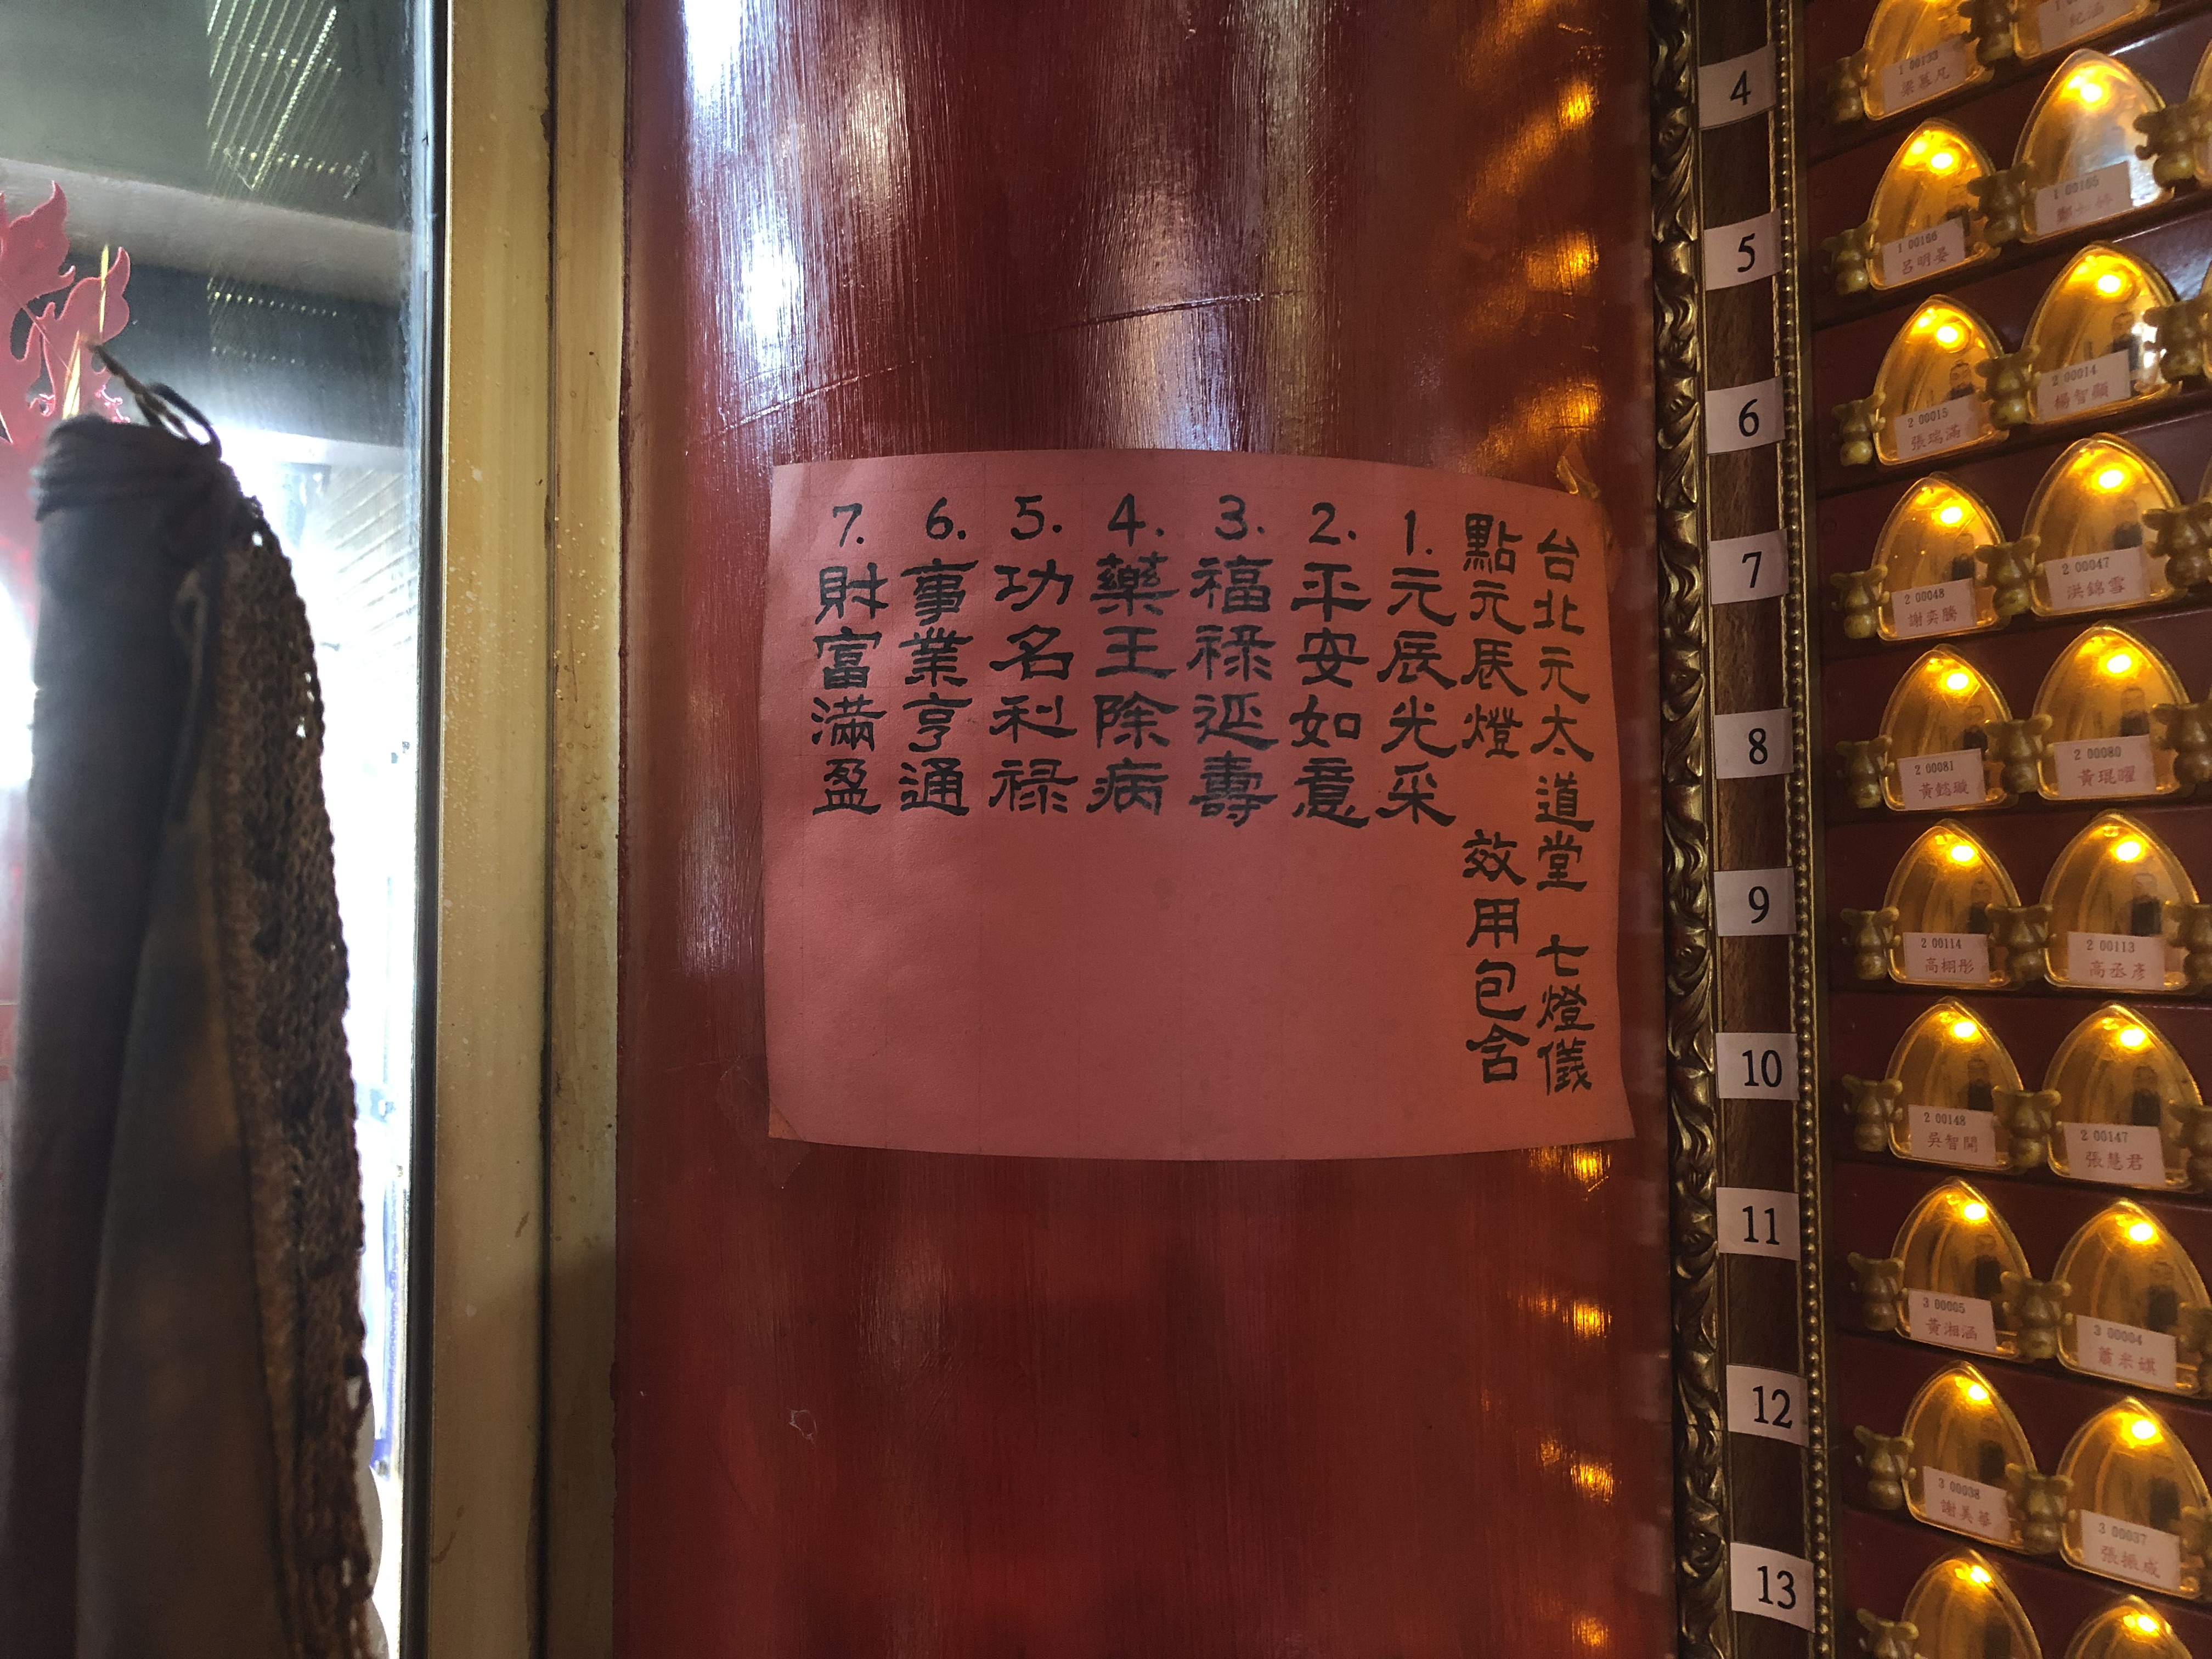 台北元太道堂 七燈儀
點元辰燈 效用包含
1.元辰光采
2.平安如意
3.福祿延壽
4.藥王除病
5.功名利祿
6.事業亨通
7.財富滿盈
4
5
6
7
8
9
10
11
12
13
1 00133
梁慕凡
1 00166
呂明晏
1 00165
2 00015
張瑞滿
2 00014
楊智顯
2 00048
謝奕騰
2 00047
洪錦雪
2 00081
2 00080
黃琨曜
2 00114
高栩彤
2 00113
高丞彥
2 00148
吳智開
2 00147
張慧君
3 00005
黃湘涵
3 00004
3 00038
謝美華
3 00037
張振成